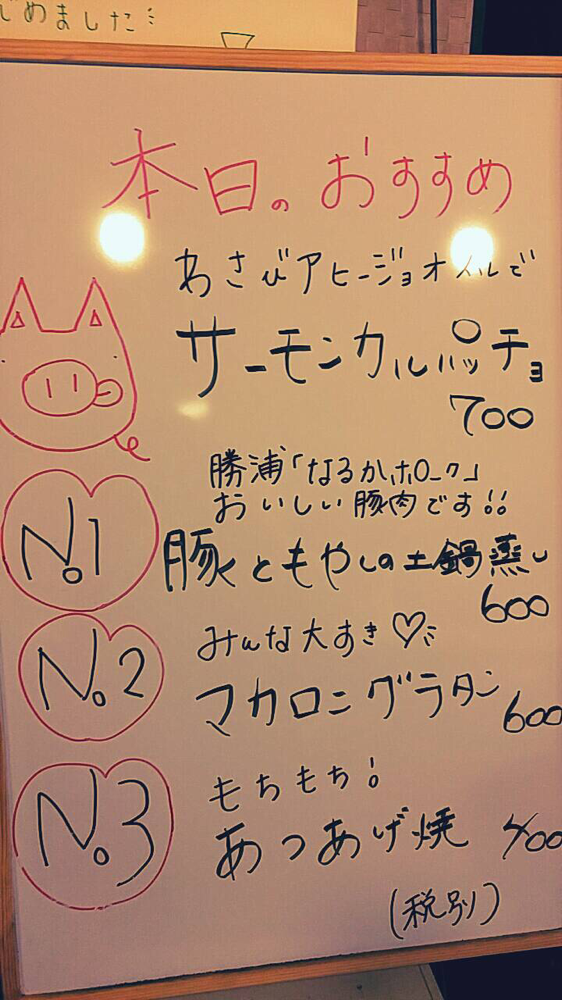 じめました
本日のおすすめ
わさびアヒージョオイルで
サーモンカルパッチョ
700
勝浦「なるかポーク」
おいしい豚肉です!!
No.1
豚ともやしの土鍋蒸し
600
みんな大すき♡
No.2
マカロニグラタン
600
もちもち!
No.3
あつあげ焼
400
(税別)